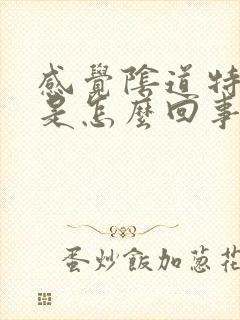 感覺陰道特
是怎麼回事
蛋炒飯加蔥花